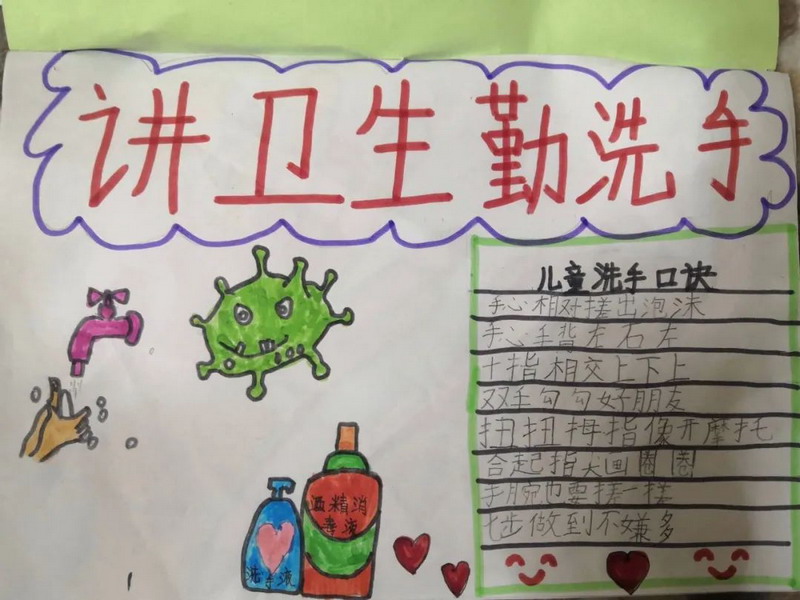 讲卫生勤洗手
儿童洗手口诀
手心相对搓出泡沫
手心手背左右左
十指相交上下上
双手勾勾好朋友
扭扭拇指像开摩托
合起指尖画圈圈
手腕也要搓一搓
七步做到不嫌多
酒精消
毒液
洗手液